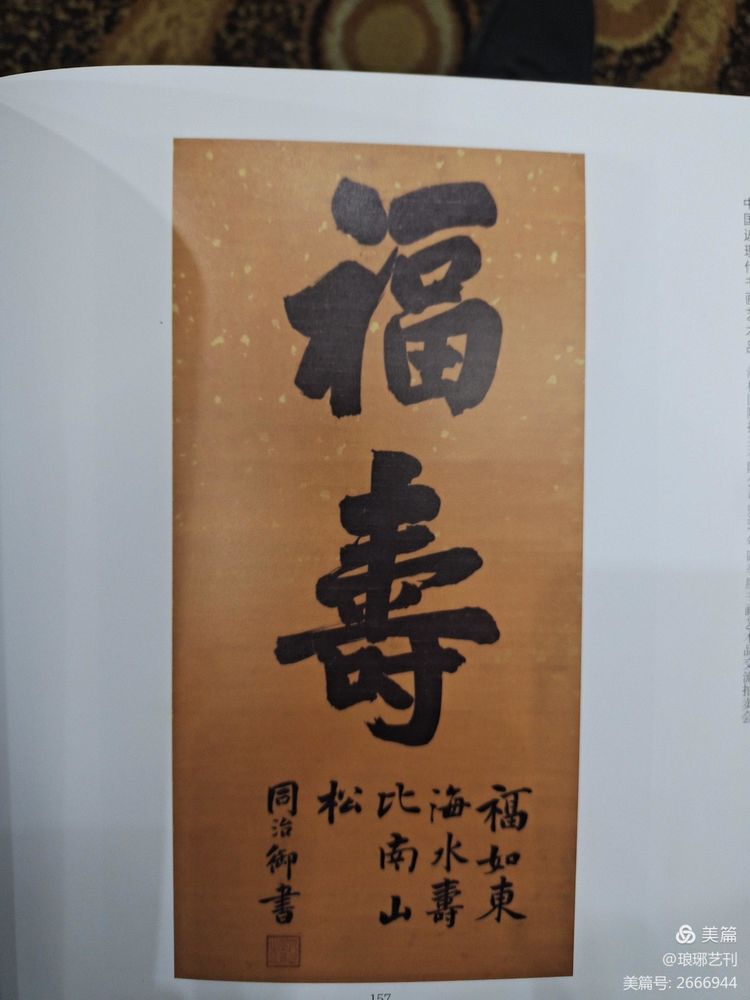 福
壽
福如東
海水壽
比南山
松
同治御書
157
美篇
@琅琊艺刊
美篇号: 2666944